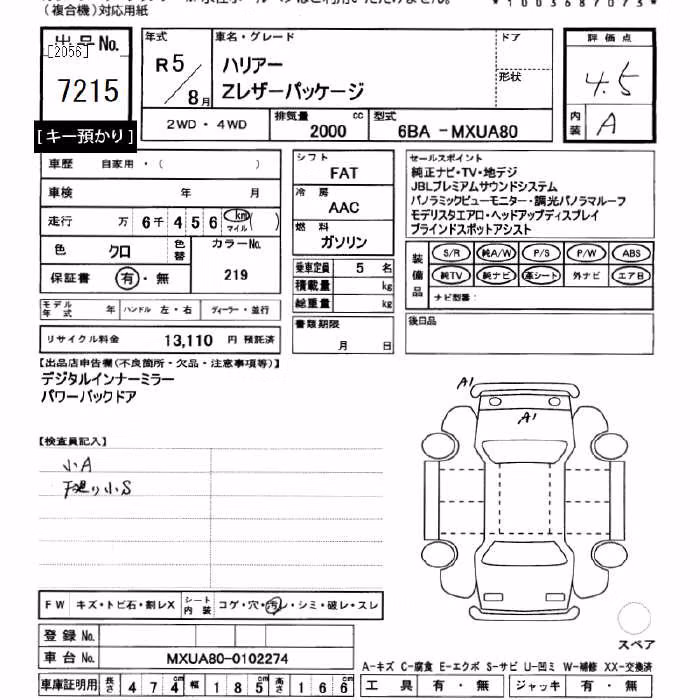 (複合機)対応用紙
*1003687073*
出品No.
[2056]
7215
[キー預かり]
年式
R5/8月
車名・グレード
ハリアー
Zレザーパッケージ
ドア
形状
2WD・4WD
排気量 2000 cc
型式 6BA-MXUA80
評価点
4.5
内装 A
車歴 自家用・( )
車検 年 月
走行 万 6千 4 5 6 km マイル ( )
色 クロ
色替
カラーNo. 219
保証書 有・無
モデル年式 年
ハンドル 左・右
ディーラー・並行
リサイクル料金 13,110 円 預託済
シフト FAT
冷房 AAC
燃料 ガソリン
乗車定員 5 名
積載量 kg
総重量 kg
書類期限
月 日
セールスポイント
純正ナビ・TV・地デジ
JBLプレミアムサウンドシステム
パノラミックビューモニター・調光パノラマルーフ
モデリスタエアロ・ヘッドアップディスプレイ
ブラインドスポットアシスト
装備品
S/R 純A/W P/S P/W ABS
純TV 純ナビ 革シート 外ナビ エアB
ナビ型番:
後日品
【出品店申告欄(不良箇所・欠品・注意事項等)】
デジタルインナーミラー
パワーバックドア
【検査員記入】
小A
下廻り小S
A1
A1
FW キズ・トビ石・割レX
シート内装 コゲ・穴・汚レ・シミ・破レ・スレ
登録No.
車台No. MXUA80-0102274
車庫証明用 長さ 474cm 幅 185cm 高さ 166cm
スペア
A-キズ C-腐食 E-エクボ S-サビ U-凹ミ W-補修 XX-交換済
工具 有・無
ジャッキ 有・無